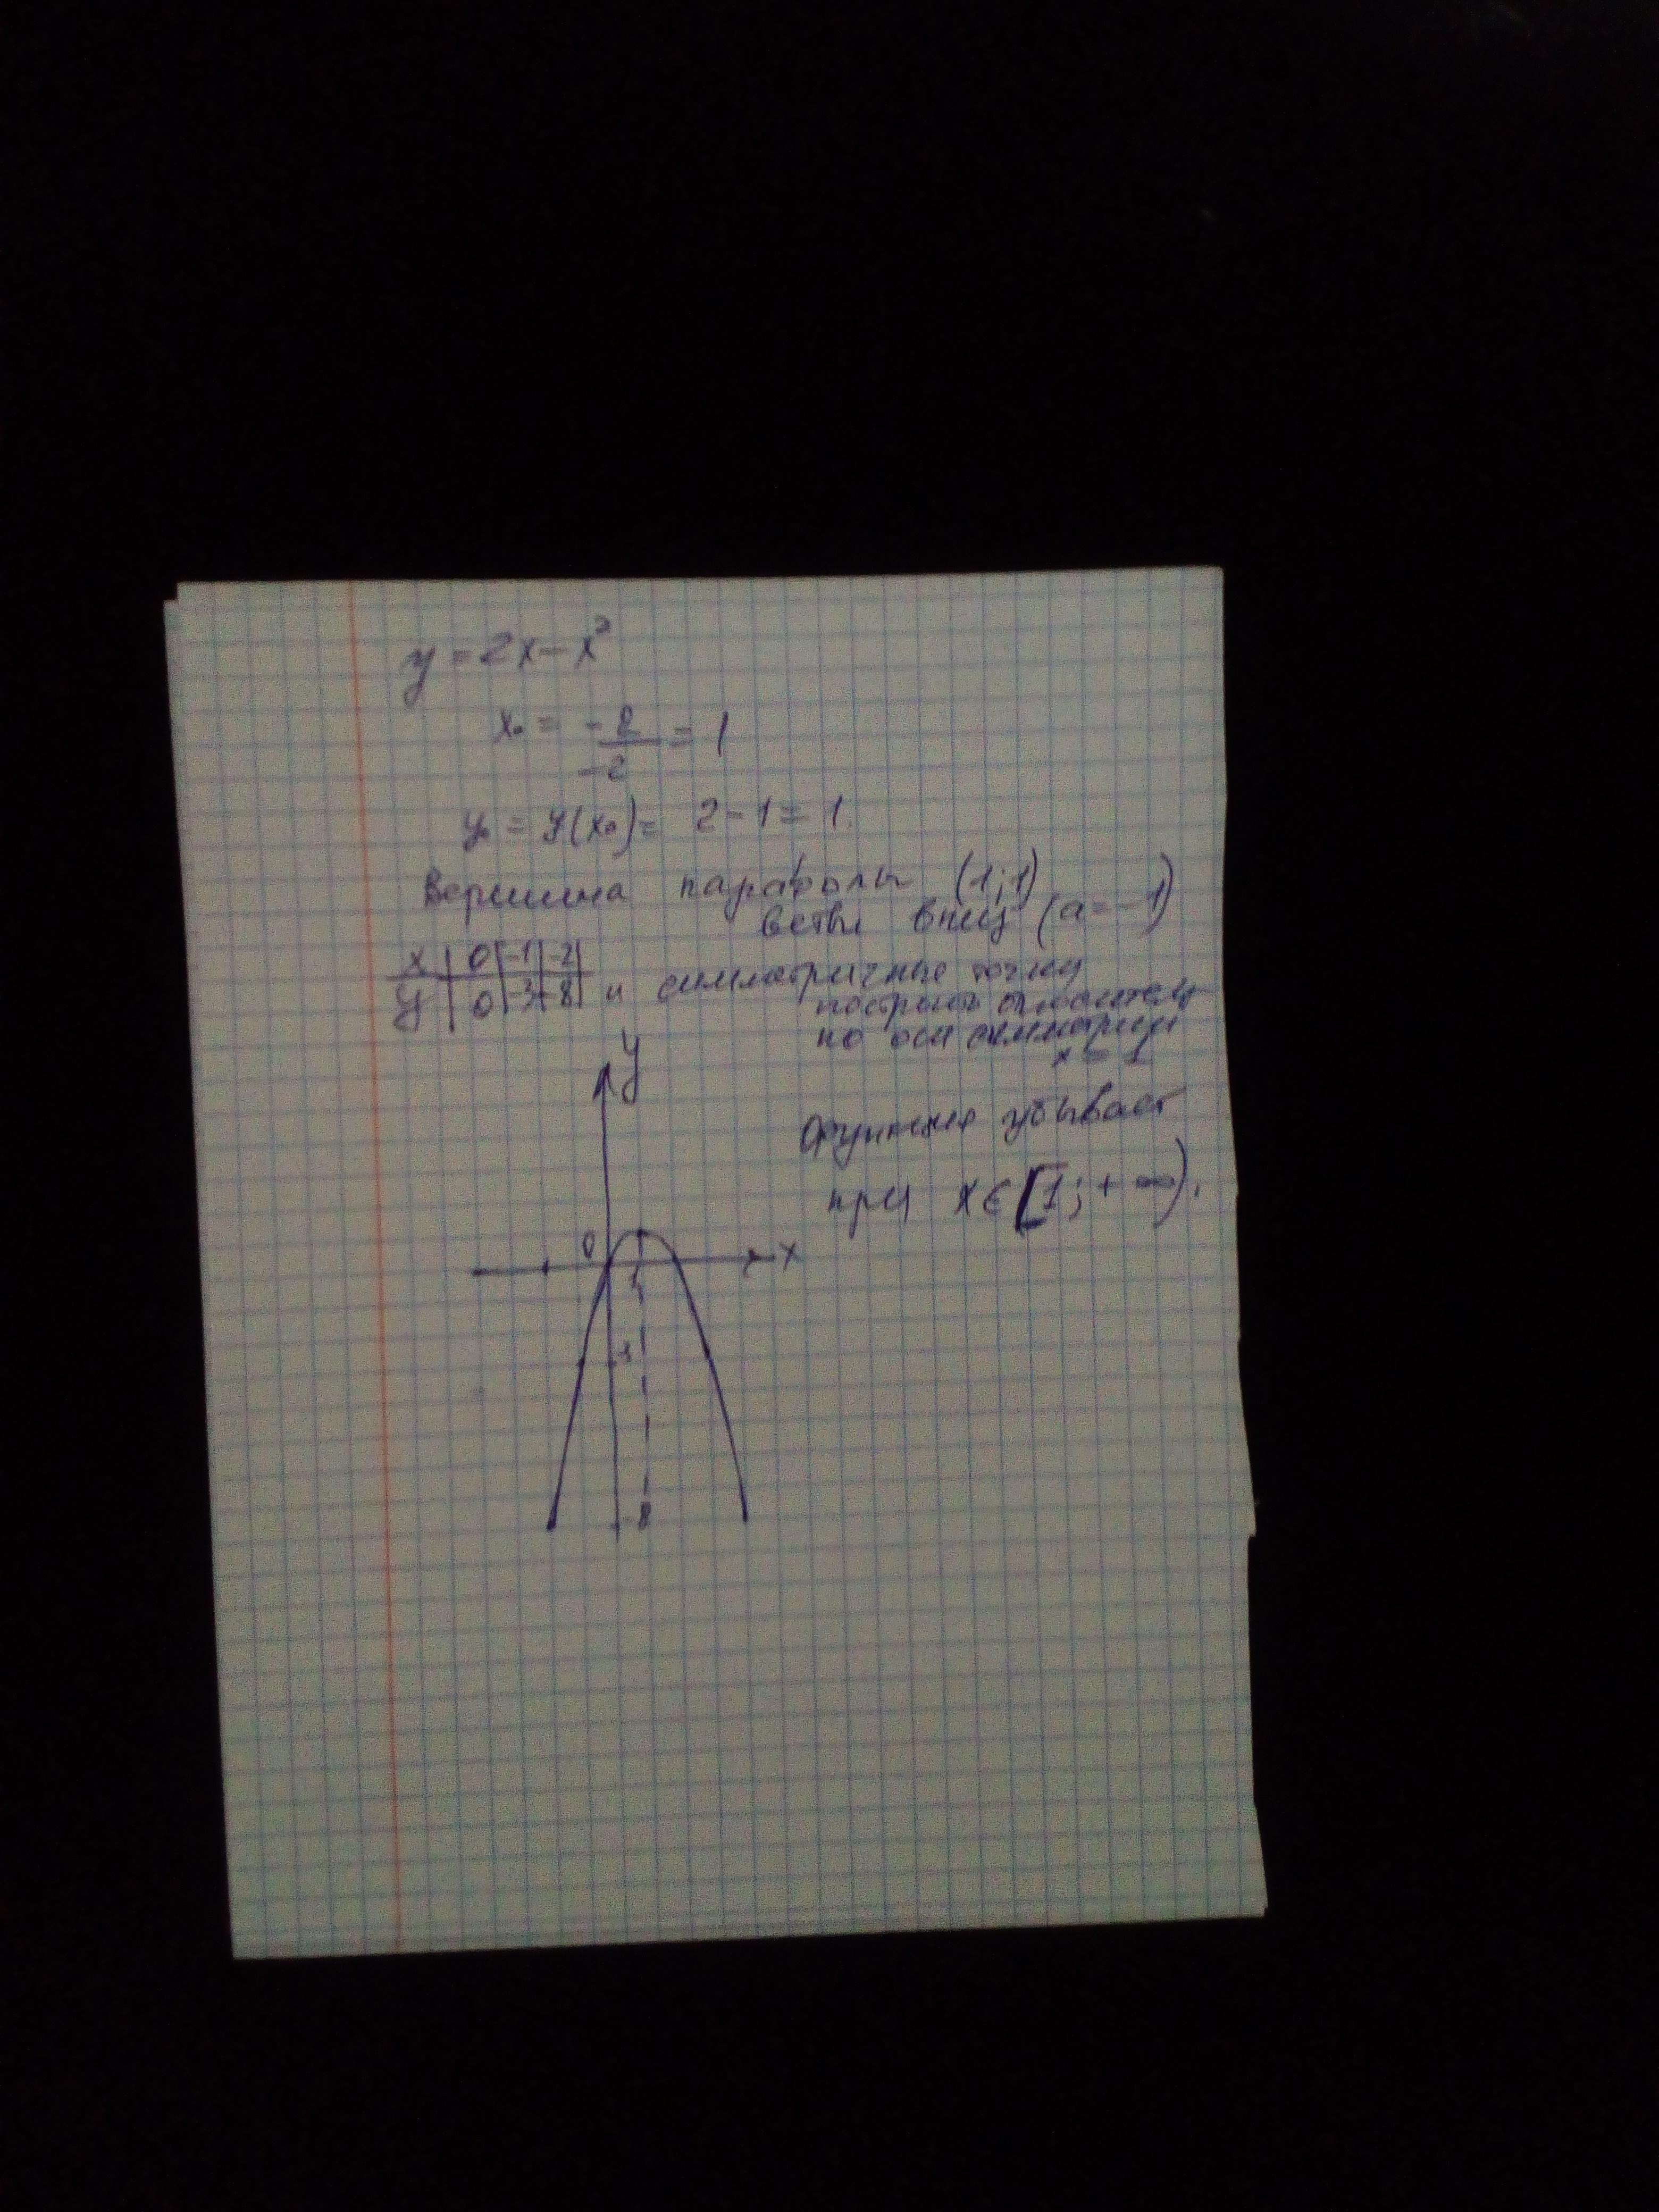 y = 2x - x²
x₀ = -2/-2 = 1
y₀ = y(x₀) = 2 - 1 = 1.
Вершина параболы (1; 1)
ветви вниз (a = -1)
x | 0 | -1 | -2 |
y | 0 | -3 | -8 | и симметричные точки
построить относительно
по оси симметрии
x = 1
Функция убывает
при x ∈ [1; + ∞).
y
0
x
1
-8